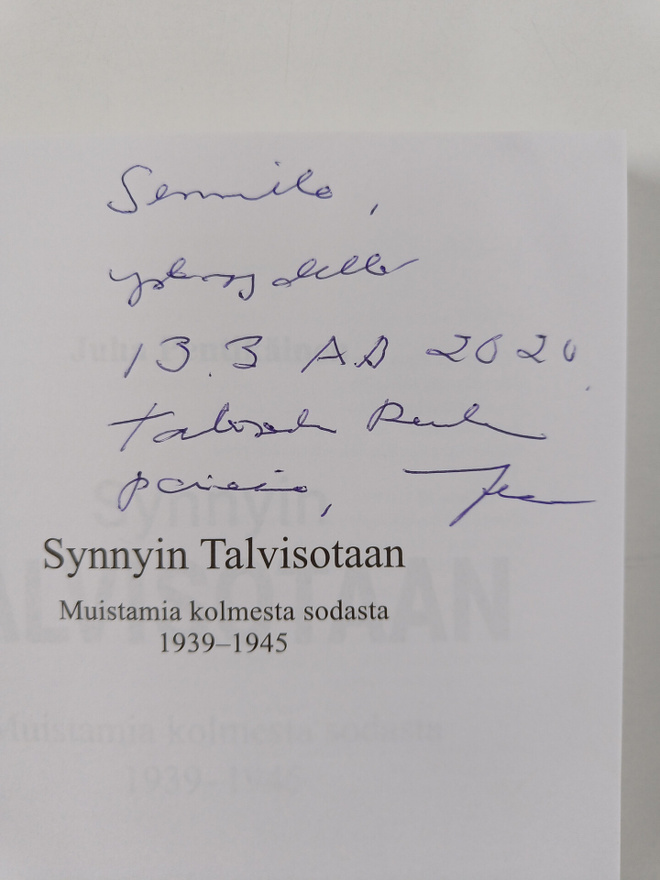 ystävyydellä
13.3 AD 2020.
Talvisodan Rauhan
päivänä, Juha
Synnyin Talvisotaan
Muistamia kolmesta sodasta
1939–1945